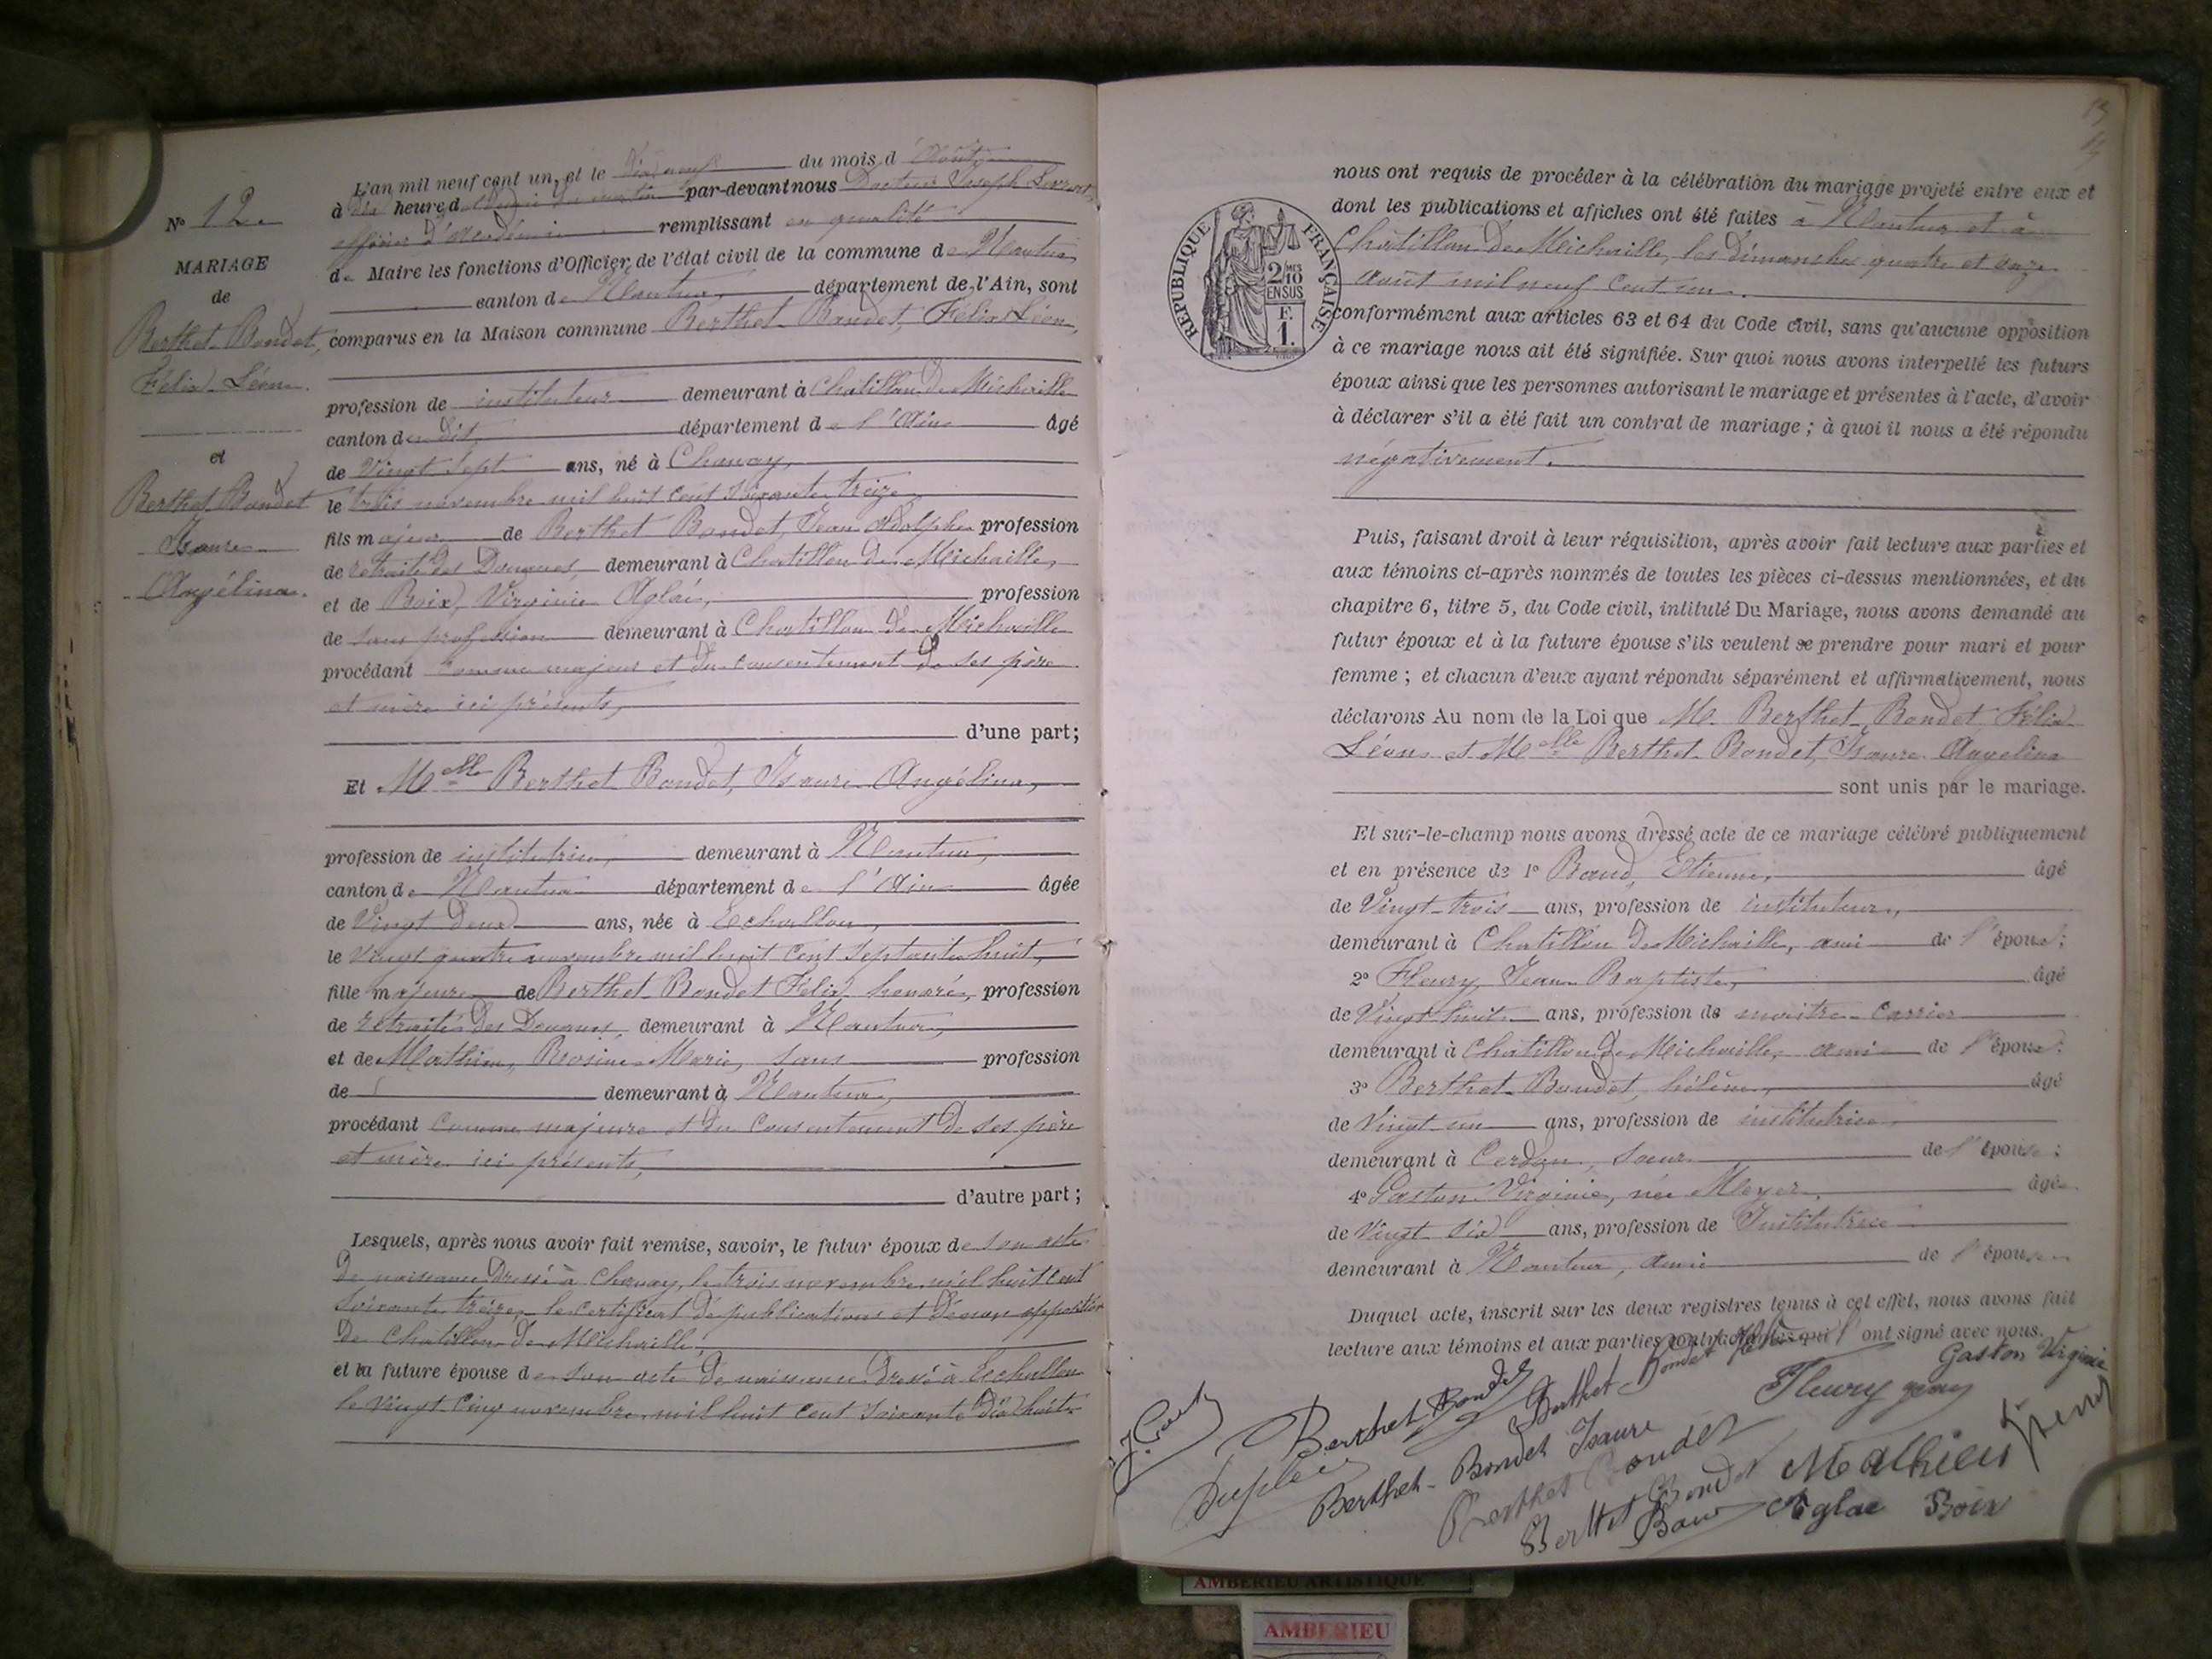 N° 12
MARIAGE
de
Berthet-Bondet,
Félix Léon.
et
Berthet-Bondet
Isaure
Angélina.
L'an mil neuf cent un, et le dix neuf du mois d'Août
à dix heures du matin par-devant nous Docteur Joseph
officier d'Académie remplissant en qualité
de Maire les fonctions d'Officier de l'état civil de la commune de Nantua
canton de Nantua, département de l'Ain, sont
comparus en la Maison commune Berthet-Bondet, Félix Léon,
profession de instituteur demeurant à Châtillon de Michaille
canton du dit, département de l'Ain âgé
de Vingt sept ans, né à Chanay,
le trois novembre mil huit cent soixante treize
fils majeur de Berthet Bondet, Jean Adolphe profession
de retraité des Douanes, demeurant à Châtillon de Michaille,
et de Boix, Virginie Aglaé, profession
de sans profession demeurant à Châtillon de Michaille
procédant comme majeur et du consentement de ses père
et mère ici présents,
d'une part;
Et Melle Berthet Bondet, Isaure Angélina,
profession de institutrice, demeurant à Nantua,
canton de Nantua département de l'Ain âgée
de Vingt deux ans, née à Echallon,
le vingt quatre novembre mil huit cent septante huit,
fille majeure de Berthet-Bondet Félix honoré, profession
de retraité des Douanes, demeurant à Nantua,
et de Mathieu, Rosine Marie, sans profession
de demeurant à Nantua,
procédant comme majeure et du consentement de ses père
et mère ici présents,
d'autre part;
Lesquels, après nous avoir fait remise, savoir, le futur époux de son acte
de naissance dressé à Chanay, le trois novembre mil huit cent
soixante treize, le certificat de publications et de non opposition
de Châtillon de Michaille,
et la future épouse de son acte de naissance dressé à Echallon
le vingt cinq novembre mil huit cent soixante dix huit
nous ont requis de procéder à la célébration du mariage projeté entre eux et
dont les publications et affiches ont été faites à Nantua et à
Châtillon de Michaille, les dimanches quatre et onze
août mil neuf cent un.
conformément aux articles 63 et 64 du Code civil, sans qu'aucune opposition
à ce mariage nous ait été signifiée. Sur quoi nous avons interpellé les futurs
époux ainsi que les personnes autorisant le mariage et présentes à l'acte, d'avoir
à déclarer s'il a été fait un contrat de mariage; à quoi il nous a été répondu
négativement.
RÉPUBLIQUE FRANÇAISE
2/10
EN SUS
F.
1.
Puis, faisant droit à leur réquisition, après avoir fait lecture aux parties et
aux témoins ci-après nommés de toutes les pièces ci-dessus mentionnées, et du
chapitre 6, titre 5, du Code civil, intitulé Du Mariage, nous avons demandé au
futur époux et à la future épouse s'ils veulent se prendre pour mari et pour
femme; et chacun d'eux ayant répondu séparément et affirmativement, nous
déclarons Au nom de la Loi que M. Berthet-Bondet, Félix
Léon et Melle Berthet-Bondet, Isaure Angelina
sont unis par le mariage.
Et sur-le-champ nous avons dressé acte de ce mariage célébré publiquement
et en présence de 1° Baud, Etienne, âgé
de Vingt-trois ans, profession de instituteur,
demeurant à Châtillon de Michaille, ami de l'époux;
2° Fleury, Jean Baptiste, âgé
de Vingt huit ans, profession de maître-carrier
demeurant à Châtillon de Michaille, ami de l'époux;
3° Berthet-Bondet, hélène, âgé
de Vingt-un ans, profession de institutrice
demeurant à Cerdon, soeur de l'épouse;
4° Gaston Virginie, née Meyer, âgée
de Vingt six ans, profession de Institutrice
demeurant à Nantua, amie de l'épouse
Duquel acte, inscrit sur les deux registres tenus à cet effet, nous avons fait
lecture aux témoins et aux parties contractantes qui l'ont signé avec nous.
Gaston Virginie
Berthet Bondet
Berthet Bondet
Fleury
Berthet-Bondet Isaure
Berthet Bondet
Mathieu
Berthet Bondet
Baud
Aglae Boix
AMBERIEU ARTISTIQUE
AMBERIEU